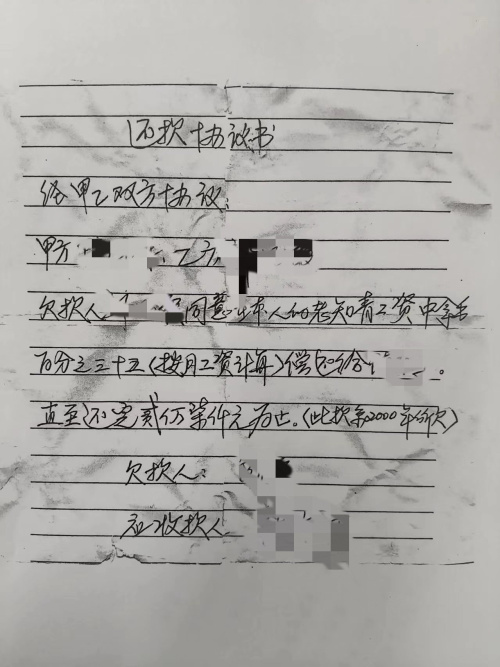 还款协议书
经甲乙双方协议:
甲方 、乙方
欠款人 同意 本人的老知青工资中拿出
百分之三十五(按月工资计算)偿还给 。
直至还完贰仟柒佰元为止。(此款系2000年 欠)
欠款人:
收款人